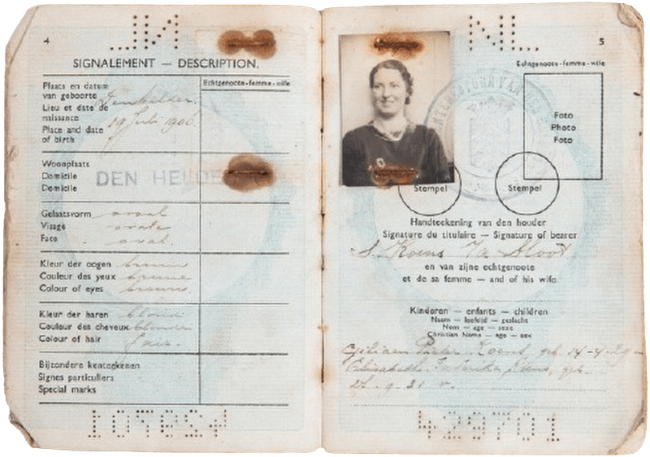 4
SIGNALEMENT — DESCRIPTION.
Echtgenoote-femme-wife
Plaats en datum
van geboorte
Lieu et date de
naissance
Place and date
of birth
19 Juli 1906
Woonplaats
Domicile
Domicile
DEN HELDER
Gelaatsvorm ovaal
Visage ovale
Face oval.
Kleur der oogen bruin
Couleur des yeux brune
Colour of eyes brown
Kleur der haren blond
Couleur des cheveux blonde
Colour of hair fair.
Bijzondere kenteekenen
Signes particuliers
Special marks
NL
5
Echtgenoote-femme-wife
Foto
Photo
Foto
Stempel
Stempel
Handteekening van den houder
Signature du titulaire — Signature of bearer
Koens
en van zijne echtgenoote
et de sa femme — and of his wife
Kinderen — enfants — children
Naam — leeftijd — geslacht
Nom — age — sexe
Christian Name — age — sex
Koens, geb. 14-4-29
Elisabeth
429701